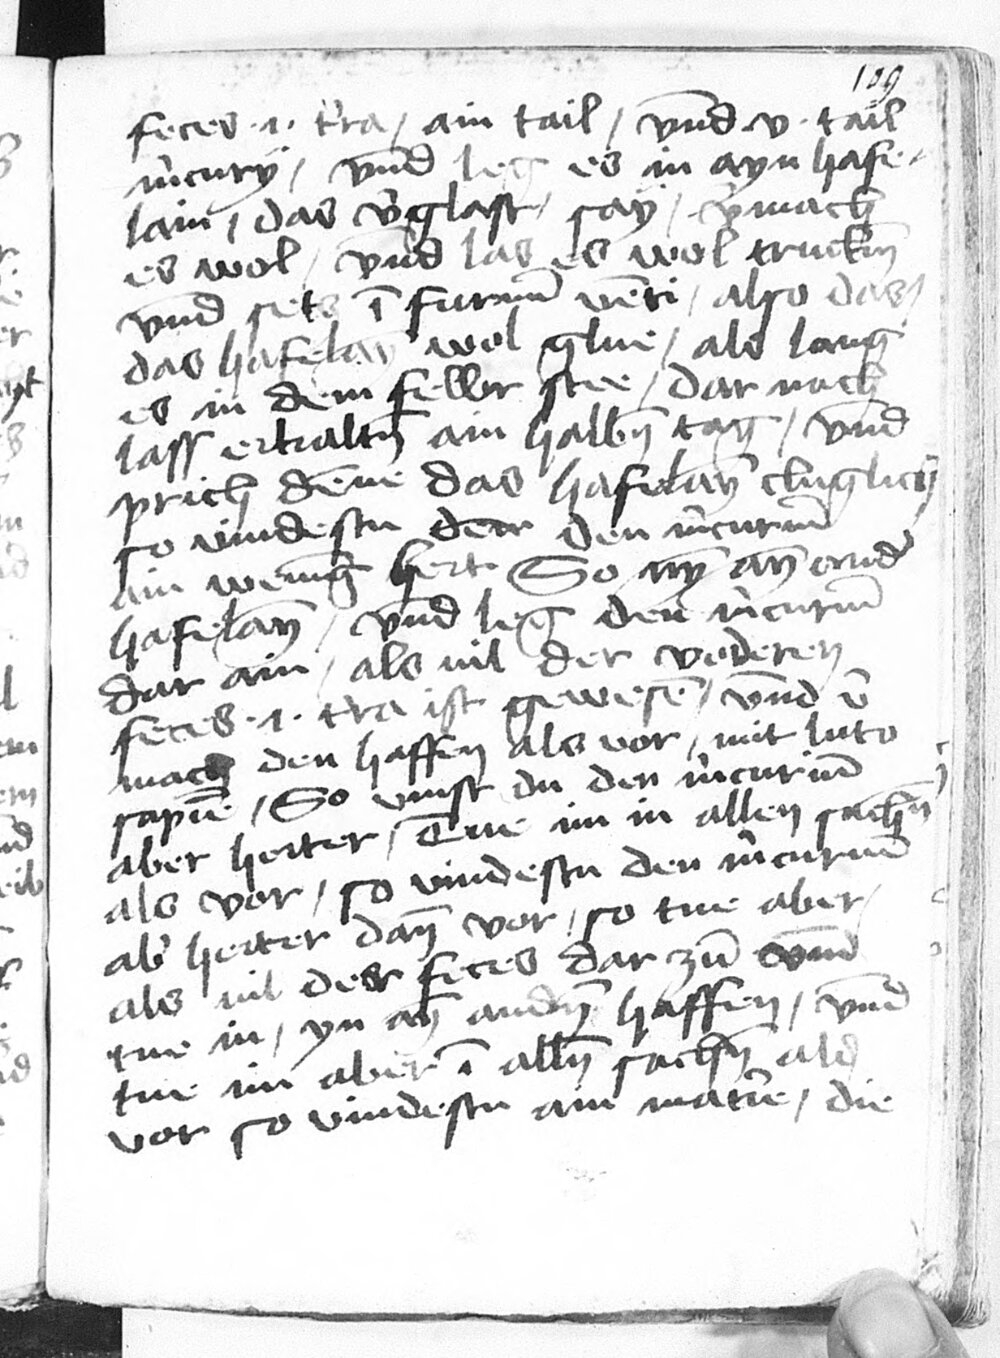 109
feces · 1 · t'ra / ain tail / vnd v · tail
m'cury / vnd leg es in ayn hafe-
lain / das v'glast / say / v'mach
es wol / vnd las es wol truckn̄
vnd setz ī furnū vēti / also das /
das hafelay̅ wol glue / als lang
es in dem fewr stee / dar nach
lass erkaltn̄ ain halbn̄ tag / vnd
prich dēne das hafelay̅ cluglich
so vindestu der den m'curiū
ain wenig hert So ny̅ ay̅ and'
hafelay̅ / vnd leg den m'curiū
dar ain / als vil der voderen
feces · 1 · t'ra ist gewesē / vnd v'
mach den haffen als vor / mit luto
sapiē / So vinst du den m'curiū
aber herter / Tue im in allen sachn̄
als vor / so vindestu den m'curiū
ab' herter day̅ vor / so tue aber /
als vil der feces dar zū vnd
tue in / yn ay̅ andn̄ haffen / vnd
tue im aber ī alln̄ sachn̄ als
vor so vindestu ain mat'ie / die